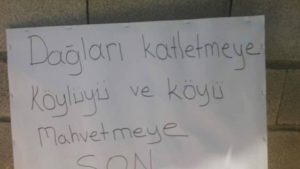 Dağları katletmeye
Köylüyü ve köyü
Mahvetmeye
SON